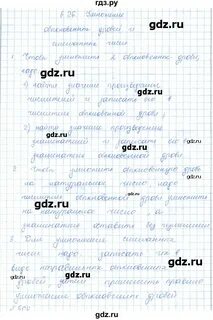 гдз.ру
§ 26. Умножение
обыкновенных дробей и
смешанных чисел
1. Чтобы умножить 2 обыкновенные дроби,
надо
1) найти значение произведения
числителей и записать его в
числителе обыкновенной дроби;
2) найти значение произведения
знаменателей и записать его в
знаменателе обыкновенной дроби
2. Чтобы умножить обыкновенную дробь
на натуральное число, надо
числитель обыкновенной дроби умножить
на натуральное число, а
знаменатель оставить без изменения
3. Для умножения смешанных
чисел надо записать их в
виде неправильных обыкновенных
дробей, далее применить правило
умножения обыкновенных дробей
гдз.ру